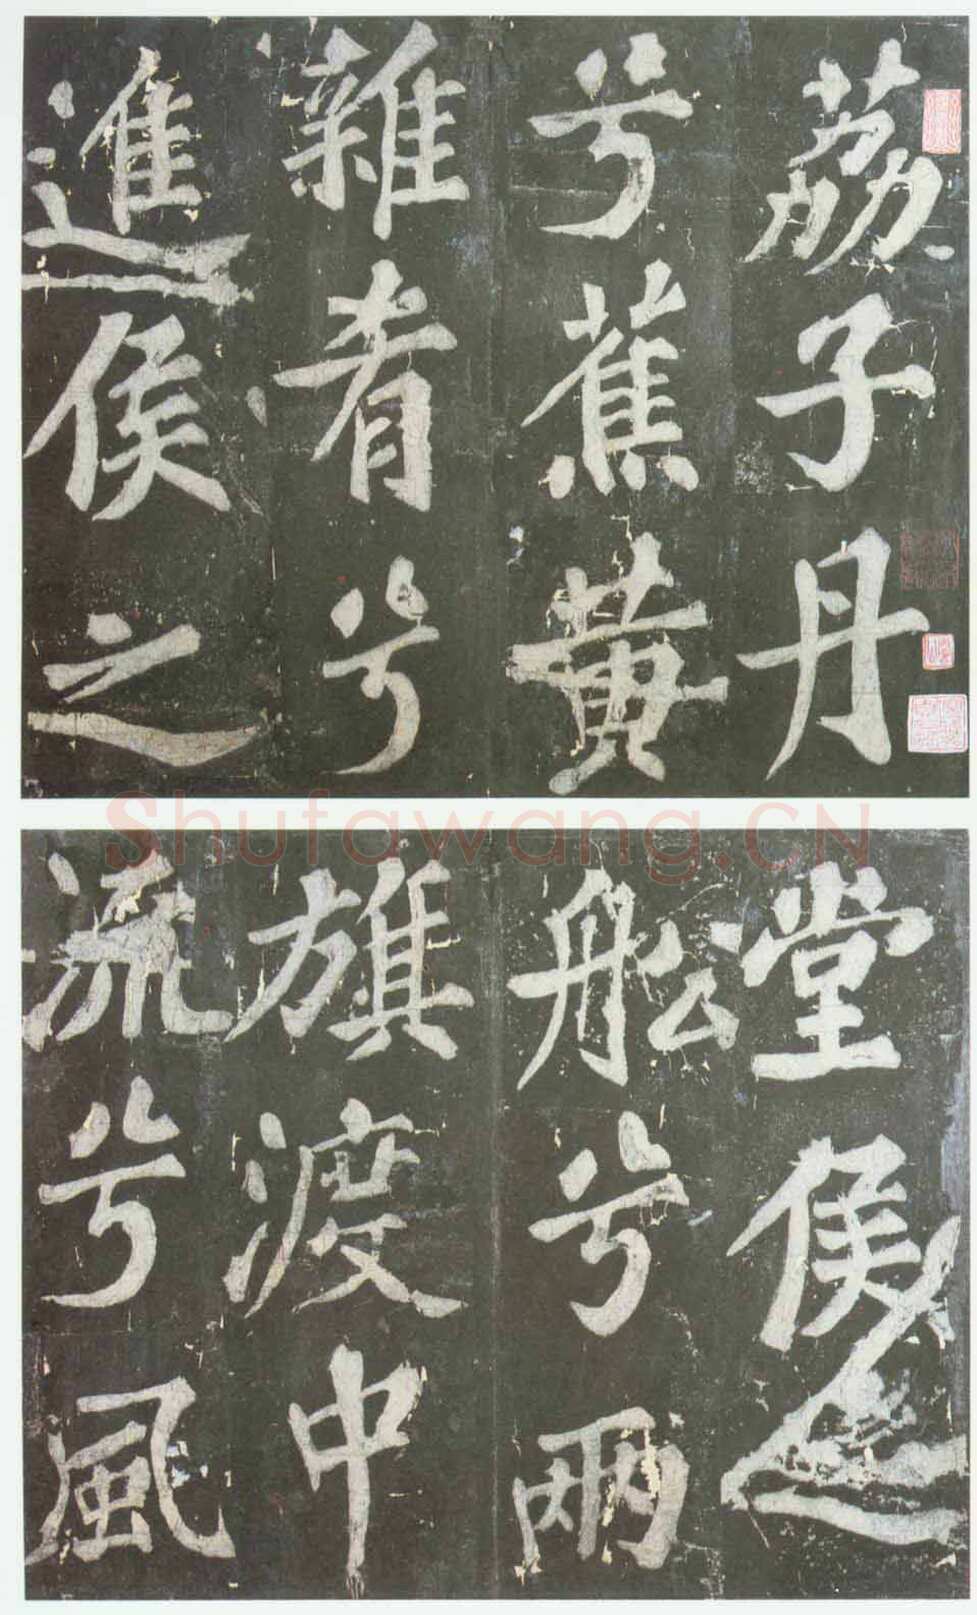 荔子丹
兮蕉黄
雜肴兮
進侯之
Shufawang.CN
堂侯之
船兮兩
旗渡中
流兮風